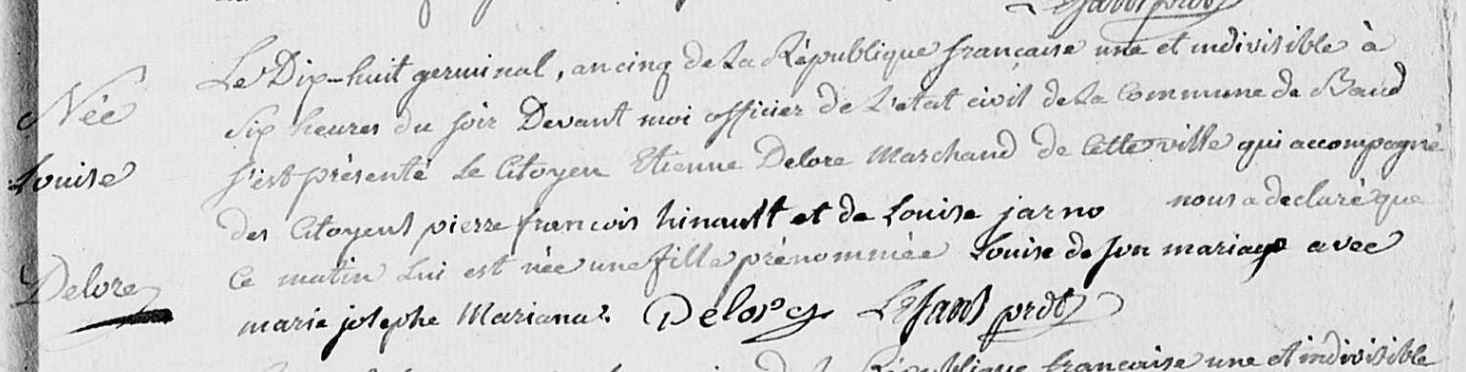 Née
Louise
Delore
Le Dix-huit germinal, an cinq de la République française une et indivisible à
six heures du soir Devant moi officier de l'etat civil de la Commune de Baud
s'est présenté le Citoyen Etienne Delore Marchand de cette ville qui accompagné
des Citoyens pierre francois hinault et de Louise jarno nous a declaré que
ce matin lui est née une fille prénommée Louise de son mariage avec
marie josephe Mariana. Delore
République française une et indivisible